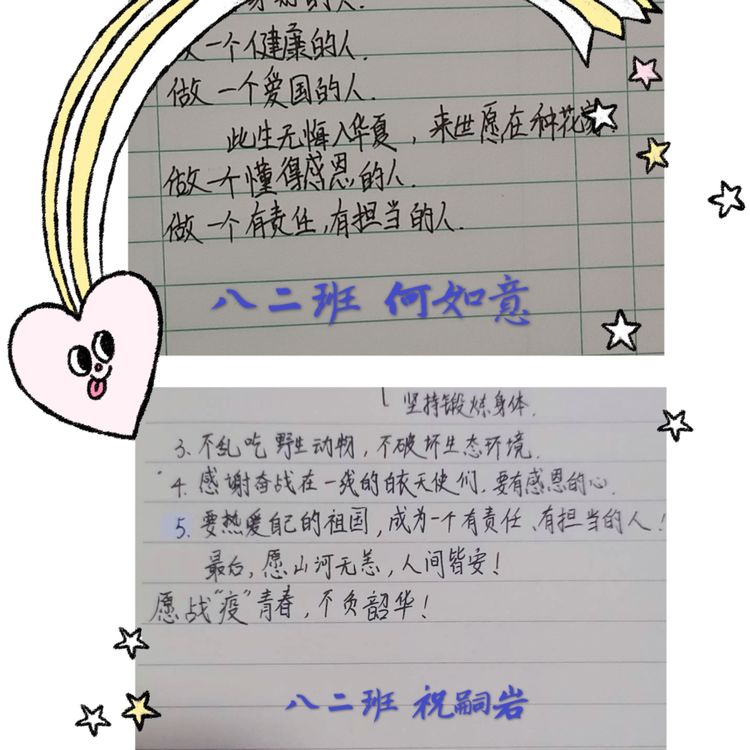 的人.
一个健康的人.
做一个爱国的人.
此生无悔入华夏，来世愿在种花家
做一个懂得感恩的人.
做一个有责任,有担当的人.
八二班 何如意
坚持锻炼身体.
3. 不乱吃野生动物，不破坏生态环境.
4. 感谢奋战在一线的白衣天使们.要有感恩的心.
5. 要热爱自己的祖国，成为一个有责任、有担当的人！
最后，愿山河无恙，人间皆安！
愿战“疫”青春，不负韶华！
八二班 祝嗣岩